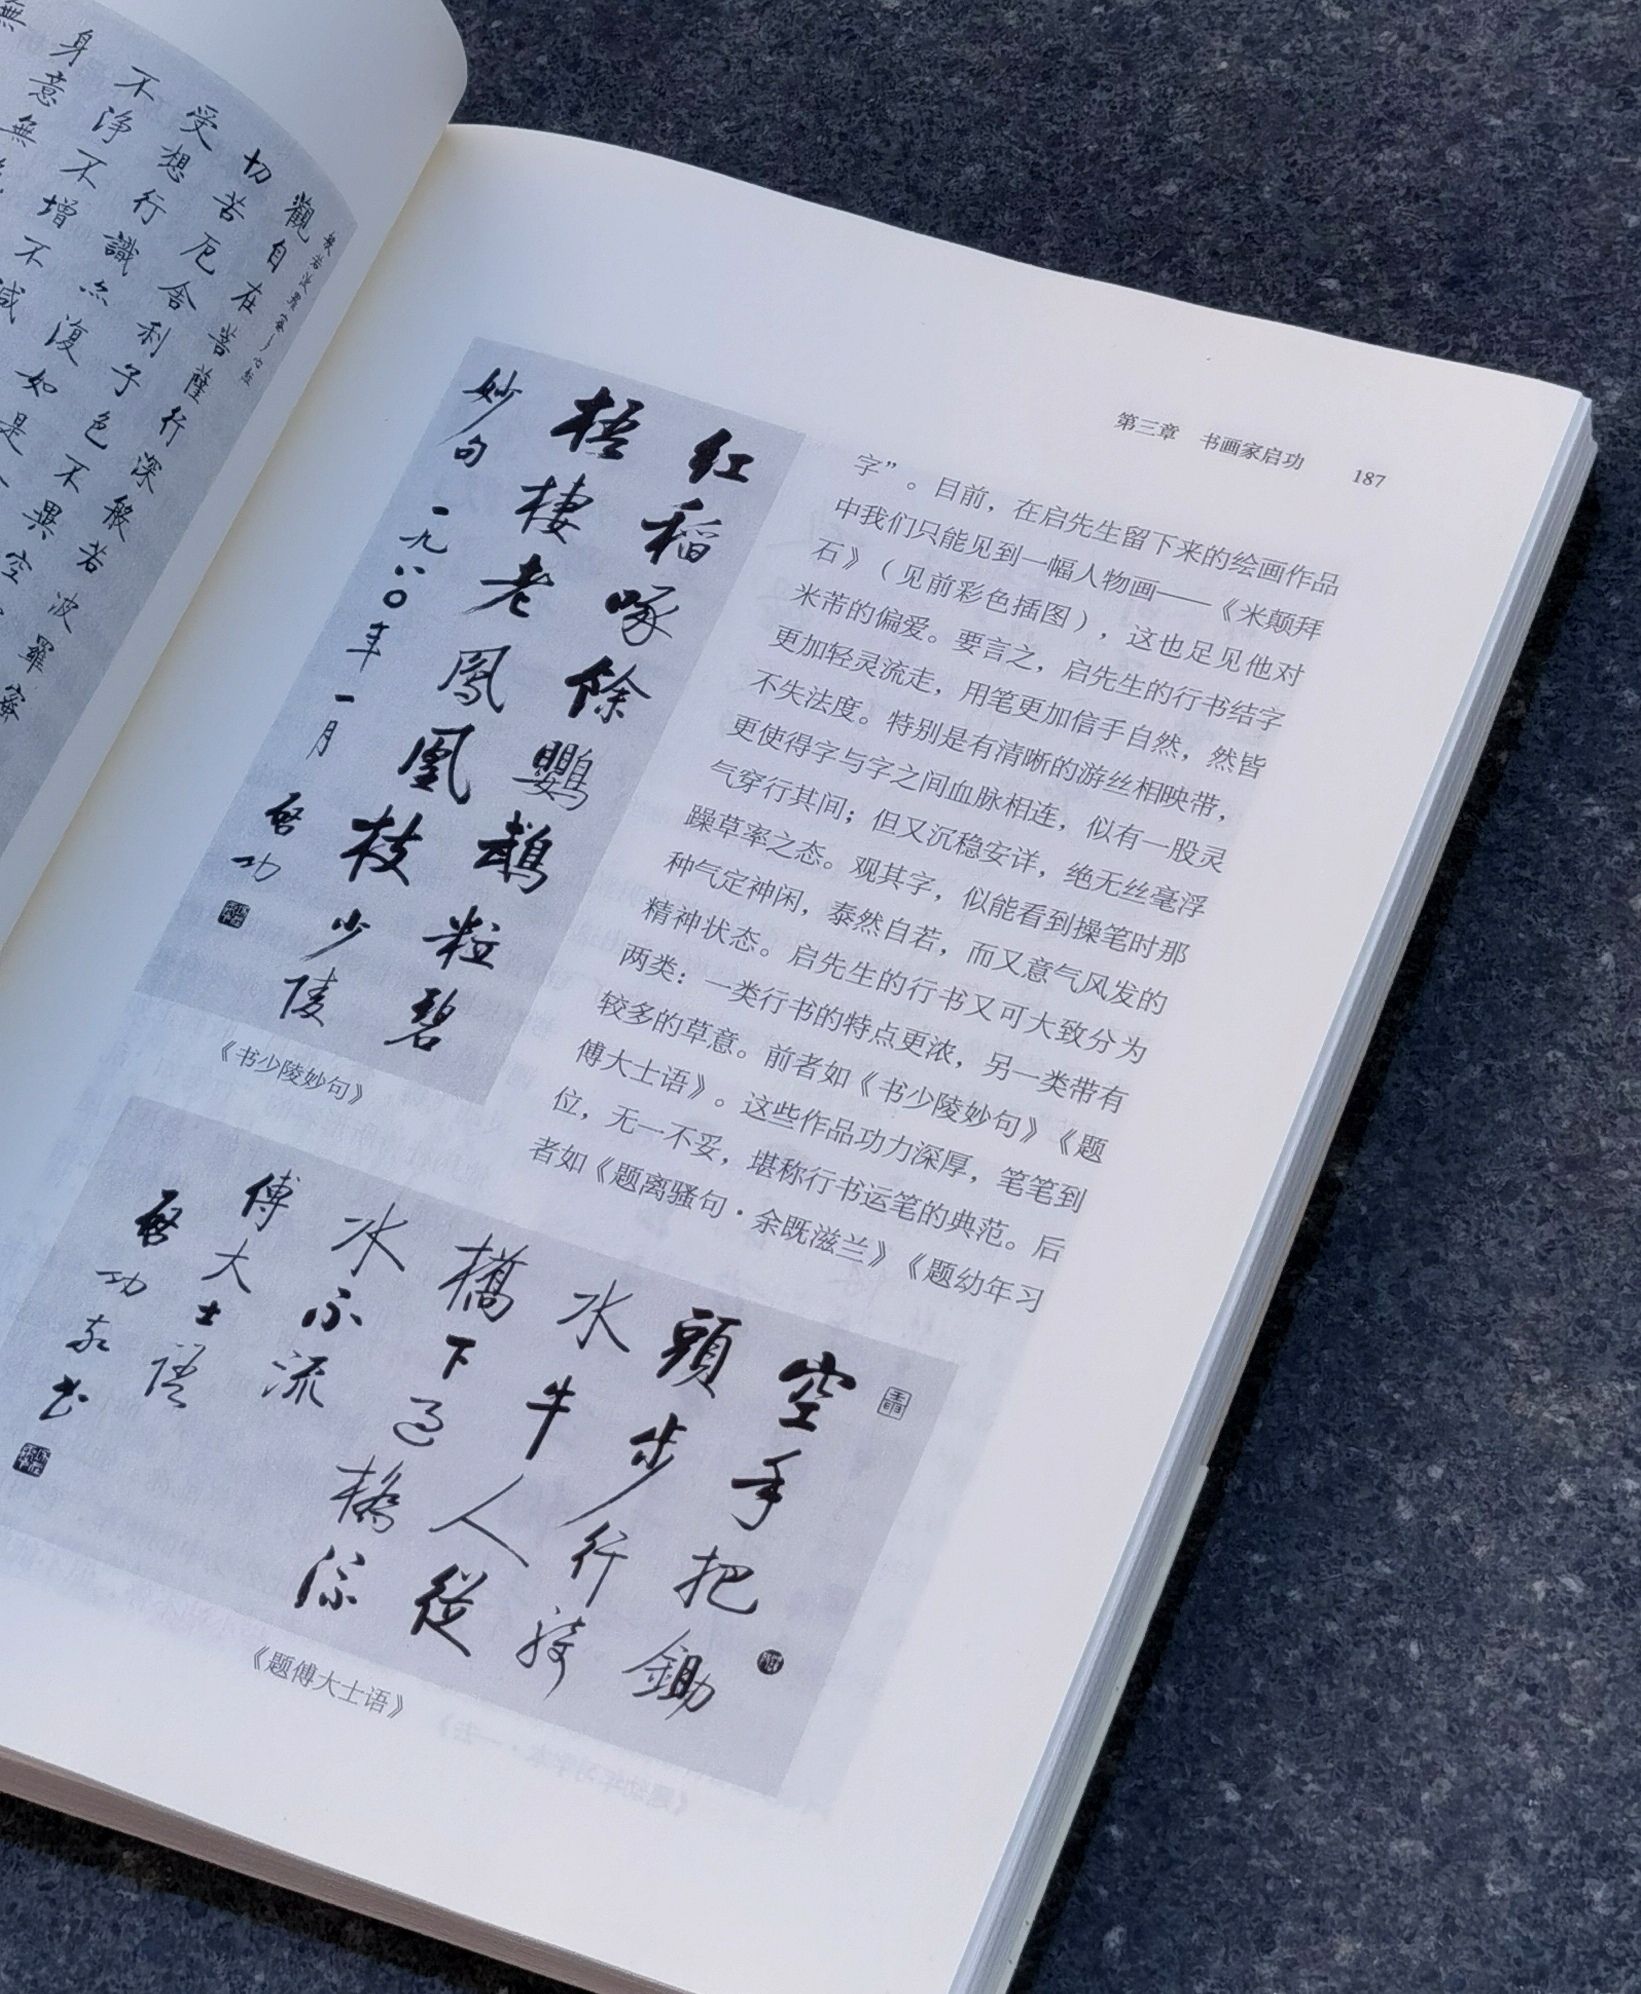 般若波罗蜜多心经
觀自在菩薩行深般若波羅蜜
切苦厄舍利子色不異空
受想行識亦復如是
不淨不增不減
身意無
無
第三章 书画家启功 187
字”。目前，在启先生留下来的绘画作品
中我们只能见到一幅人物画——《米颠拜
石》（见前彩色插图），这也足见他对
米芾的偏爱。要言之，启先生的行书结字
更加轻灵流走，用笔更加信手自然，然皆
不失法度。特别是有清晰的游丝相映带，
更使得字与字之间血脉相连，似有一股灵
气穿行其间；但又沉稳安详，绝无丝毫浮
躁草率之态。观其字，似能看到操笔时那
种气定神闲，泰然自若，而又意气风发的
精神状态。启先生的行书又可大致分为
两类：一类行书的特点更浓，另一类带有
较多的草意。前者如《书少陵妙句》《题
傅大士语》。这些作品功力深厚，笔笔到
位，无一不妥，堪称行书运笔的典范。后
者如《题离骚句·余既滋兰》《题幼年习
红稻啄餘鸚鵡粒碧
梧棲老鳳凰枝少陵
妙句 一九八〇年一月
啓功
《书少陵妙句》
空手把鋤
頭步行騎
水牛人從
橋下過橋流
水不流
傅大士語
啓功敬书
《题傅大士语》